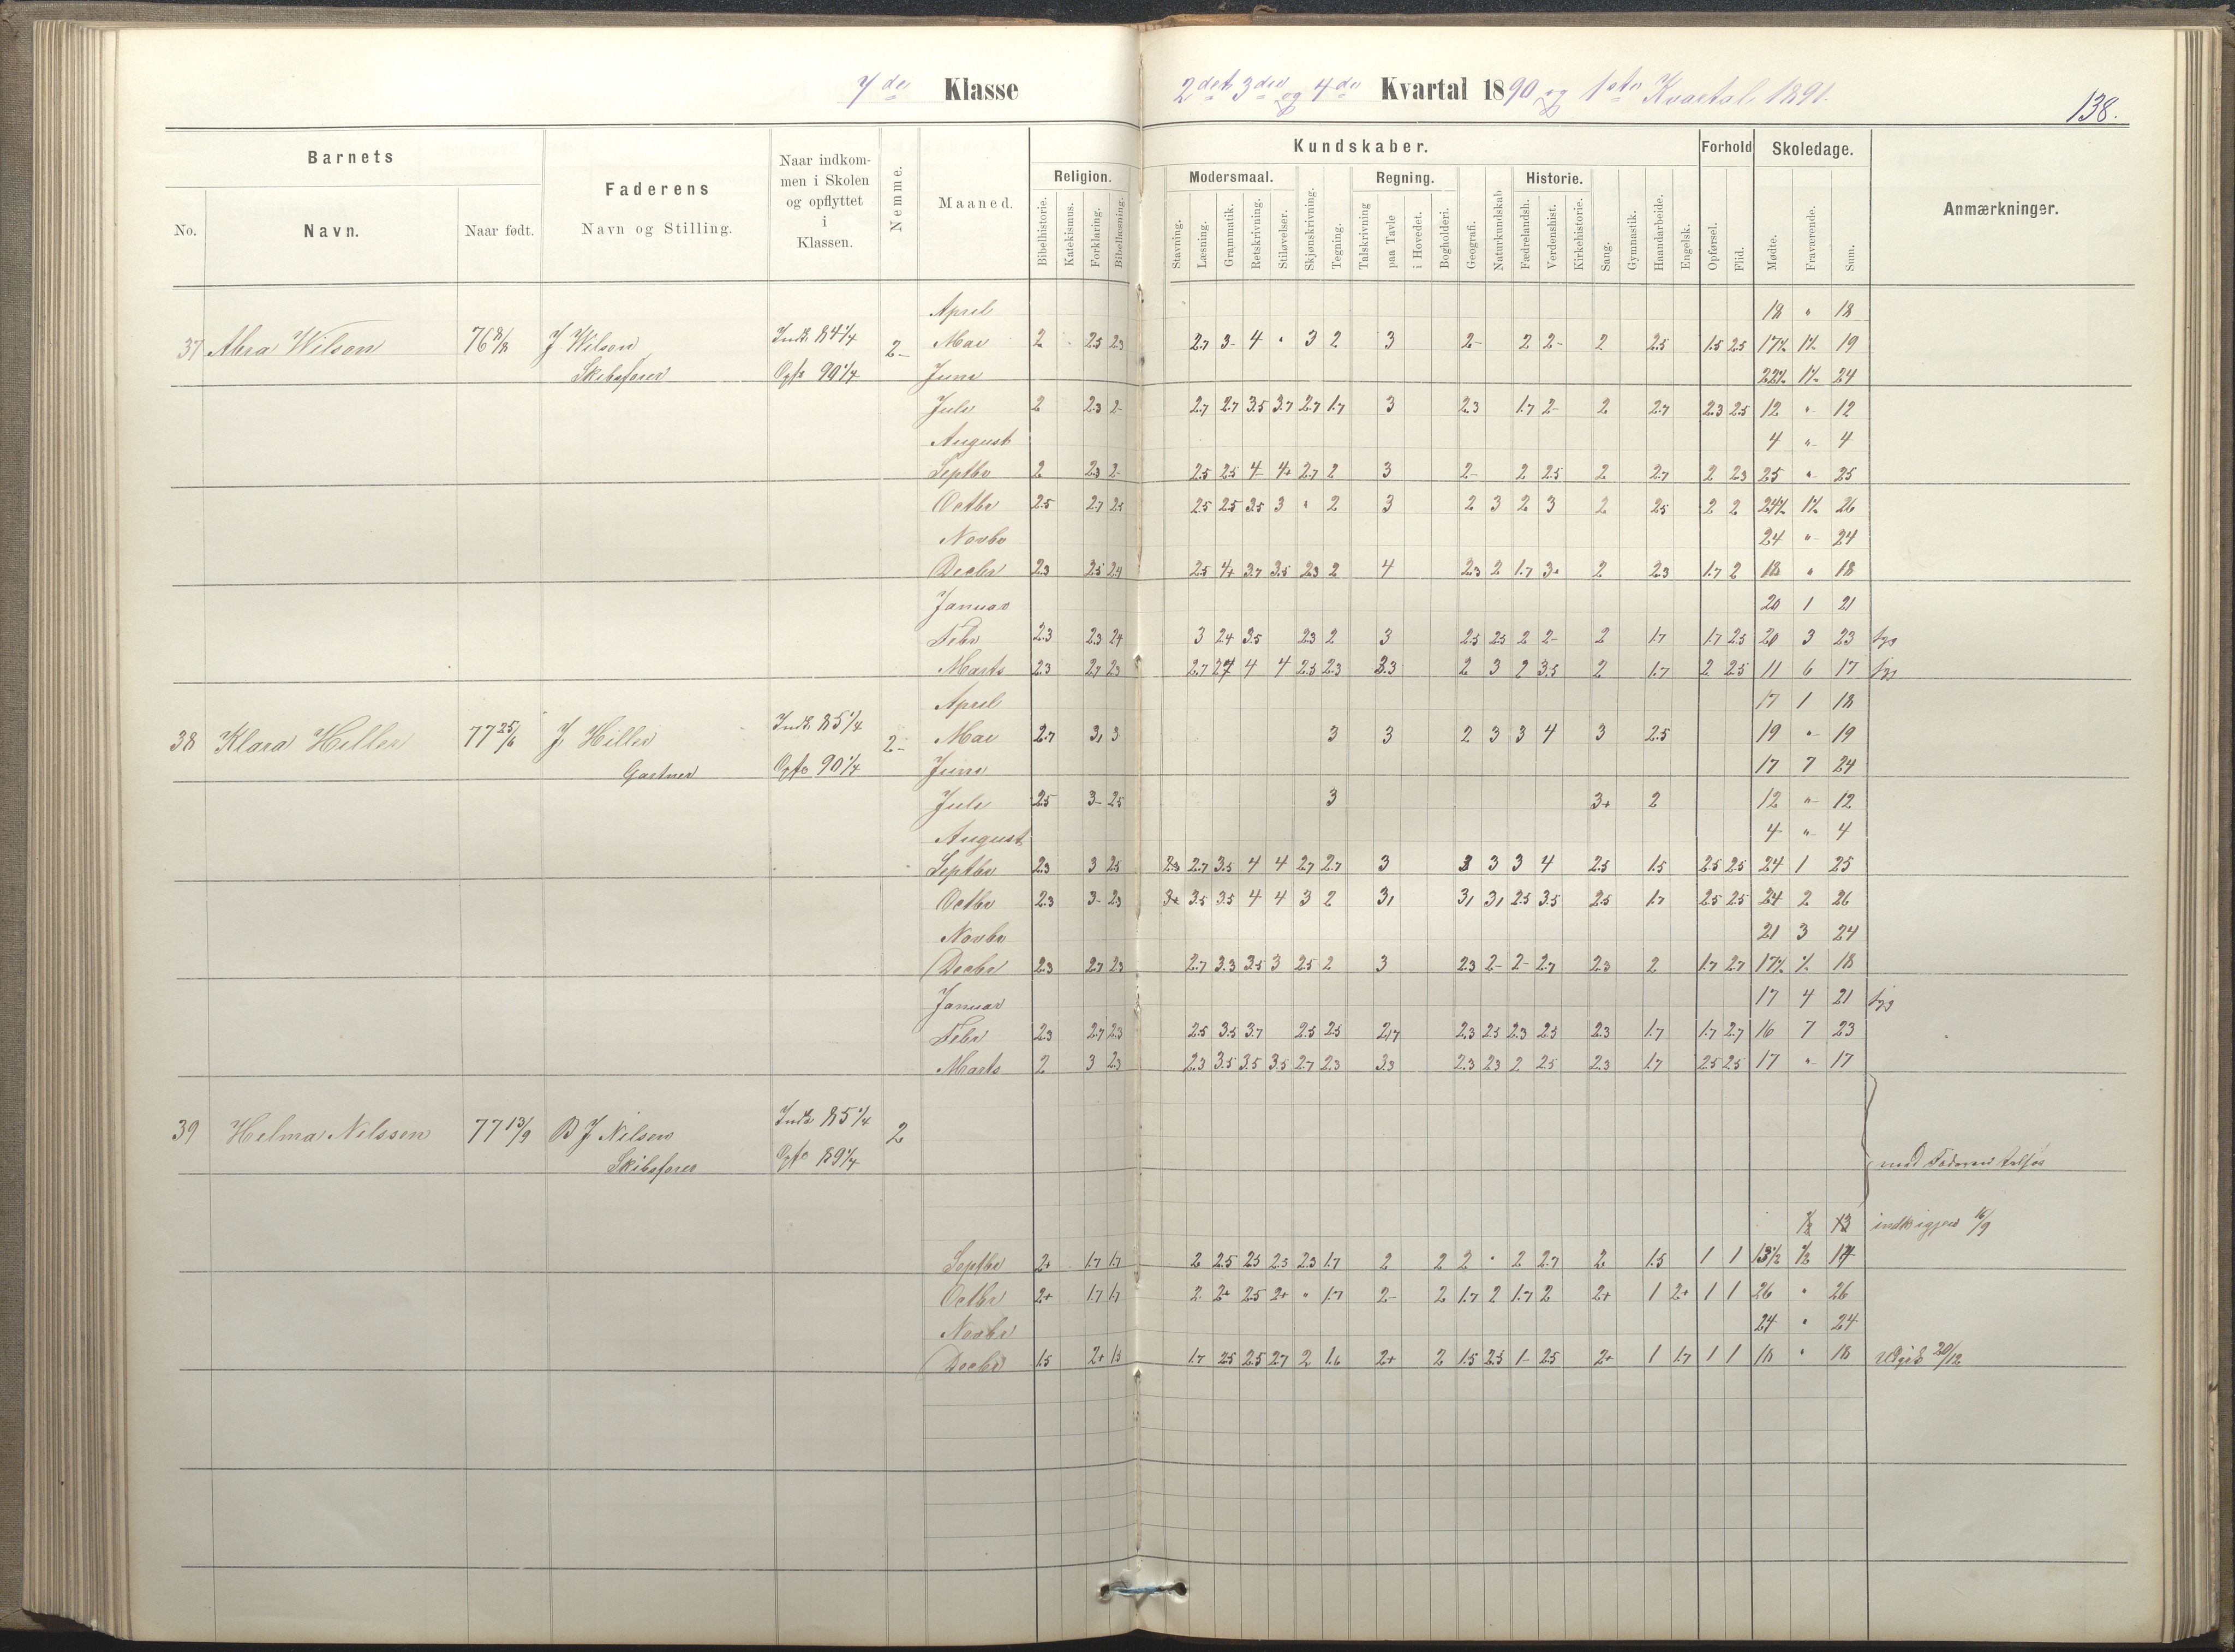 7de Klasse 2det 3die og 4de Kvartal 1890 og 1ste Kvartal 1891.
138.
Barnets Faderens Naar indkommen i Skolen og opflyttet i Klassen. Nemme. Maaned. Religion. Kundskaber. Forhold Skoledage. Anmærkninger.
No. Navn. Naar født. Navn og Stilling.
Modersmaal. Regning. Historie.
Bibelhistorie. Katekismus. Forklaring. Bibellæsning. Stavning. Læsning. Grammatik. Retskrivning. Stiløvelser. Skjønskrivning. Tegning. Talskrivning paa Tavle i Hovedet. Bogholderi. Geografi. Naturkundskab Fædrelandsh. Verdenshist. Kirkehistorie. Sang. Gymnastik. Haandarbeide. Engelsk. Opførsel. Flid. Mødte. Fraværende. Sum.
April 18 " 18
37 Wilson 76 8/8 J Wilson Indk. 84 1/4 2- Mai 2 2.5 2.3 2.7 3- 4 " 3 2 3 2- 2 2- 2 2.5 1.5 2.5 17½ 1½ 19
Skibsfører Opfl. 90 1/4 Juni 22½ 1½ 24
Juli 2 2.3 2- 2.7 2.7 3.5 3.7 2.7 1.7 3 2.3 1.7 2- 2 2.7 2.3 2.5 12 " 12
August 4 " 4
Septbr 2 2.3 2- 2.5 2.5 4- 4+ 2.7 2 3 2- 2 2.5 2 2.7 2 2.3 25 " 25
Octbr 2.5 2.7 2.5 2.5 2.5 3.5 3 " 2 3 2 3 2 3 2 2.5 2 2 24½ 1½ 26
Novbr 24 " 24
Decbr 2.3 2.5 2.4 2.5 4+ 3.7 3.5 2.3 2 4 2.3 2 1.7 3+ 2 2.3 1.7 2 18 " 18
Januar 20 1 21
Febr 2.3 2.3 2.4 3 2.4 3.5 2.3 2 3 2.5 2.5 2 2- 2 1.7 1.7 2.5 20 3 23 syg
Marts 2.3 2.7 2.3 2.7 2.7 4 4 2.5 2.3 3.3 2 3 2 3.5 2 1.7 2 2.5 11 6 17 syg
April 17 1 18
38 Klara Hiller 77 25/6 J Hiller Indk. 85 1/4 2- Mai 2.7 3, 3 3 3 2 3 3 4 3 2.5 19 " 19
Gartner Opfl. 90 1/4 Juni 17 7 24
Juli 2.5 3- 2.5 3 3+ 2 12 " 12
August 4 " 4
Septbr 2.3 3 2.5 2.3 2.7 3.5 4 4 2.7 2.7 3 3 3 3 4 2.5 1.5 2.5 2.5 24 1 25
Octbr 2.3 3- 2.3 3+ 3.5 3.5 4 4 3 2 3, 3, 3, 2.5 3.5 2.5 1.7 2.5 2.5 24 2 26
Novbr 21 3 24
Decbr 2.3 2.7 2.3 2.7 3.3 3.5 3 2.5 2 3 2.3 2- 2- 2.7 2.3 2 1.7 2.7 17½ ½ 18
Januar 17 4 21 syg
Febr 2.3 2.7 2.3 2.5 3.5 3.7 2.5 2.5 2,7 2.3 2.5 2.3 2.5 2.3 1.7 1.7 2.7 16 7 23
Marts 2 3 2.3 2.3 3.5 3.5 3.5 2.7 2.3 3.3 2.3 2.3 2 2.5 2.3 1.7 2.5 2.5 17 " 17
39 Helma Nilssen 77 13/9 B J Nilsen Indk. 85 1/4 2
Skibsfører Opfl. 89 1/4 med Faderen tilsjøs
indk igjen 16/9
Septbr 2+ 1.7 1.7 2 2.5 2.5 2.5 2.3 1.7 2 2 2 " 2 2.7 2 1.5 1 1 13½ ½ 14
Octbr 2+ 1.7 1.7 2 2+ 2.5 2+ " 1.7 2- 2 1.7 2 1.7 2 2+ 1 2+ 1 1 26 " 26
Novbr 24 " 24
Decbr 1.5 2+ 1.5 1.7 2.5 2.5 2.7 2 1.6 2+ 2 1.5 2.5 1- 2.5 2+ 1 1.7 1 1 18 " 18 Udgik 20/12